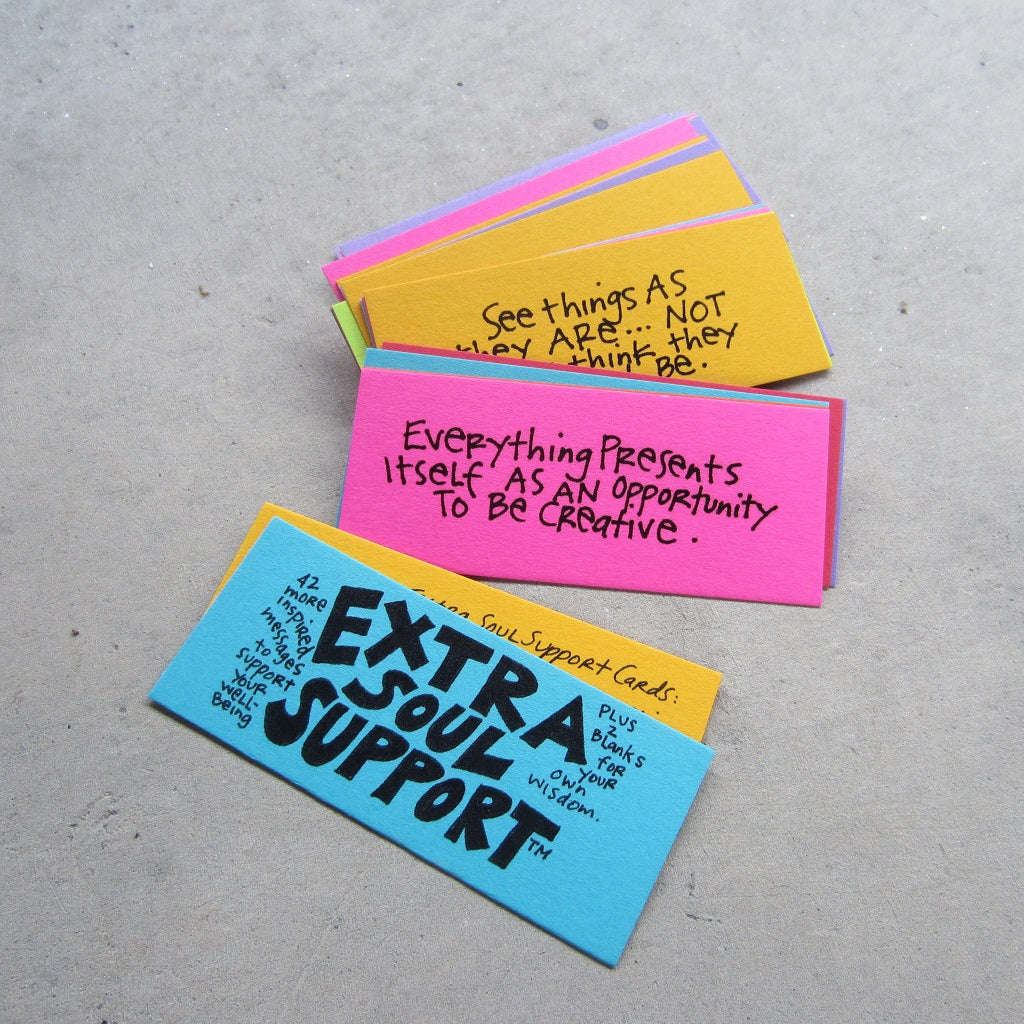 See things AS
they ARe... NOT
think they
Be.
Everything Presents
Itself AS AN Opportunity
To Be Creative.
Extra Soul Support Cards:
42
more
inspired
messages
to
support
your
well-
Being
EXTRA
SOUL
SUPPORT™
PLUS
2
Blanks
for
your
own
wisdom.